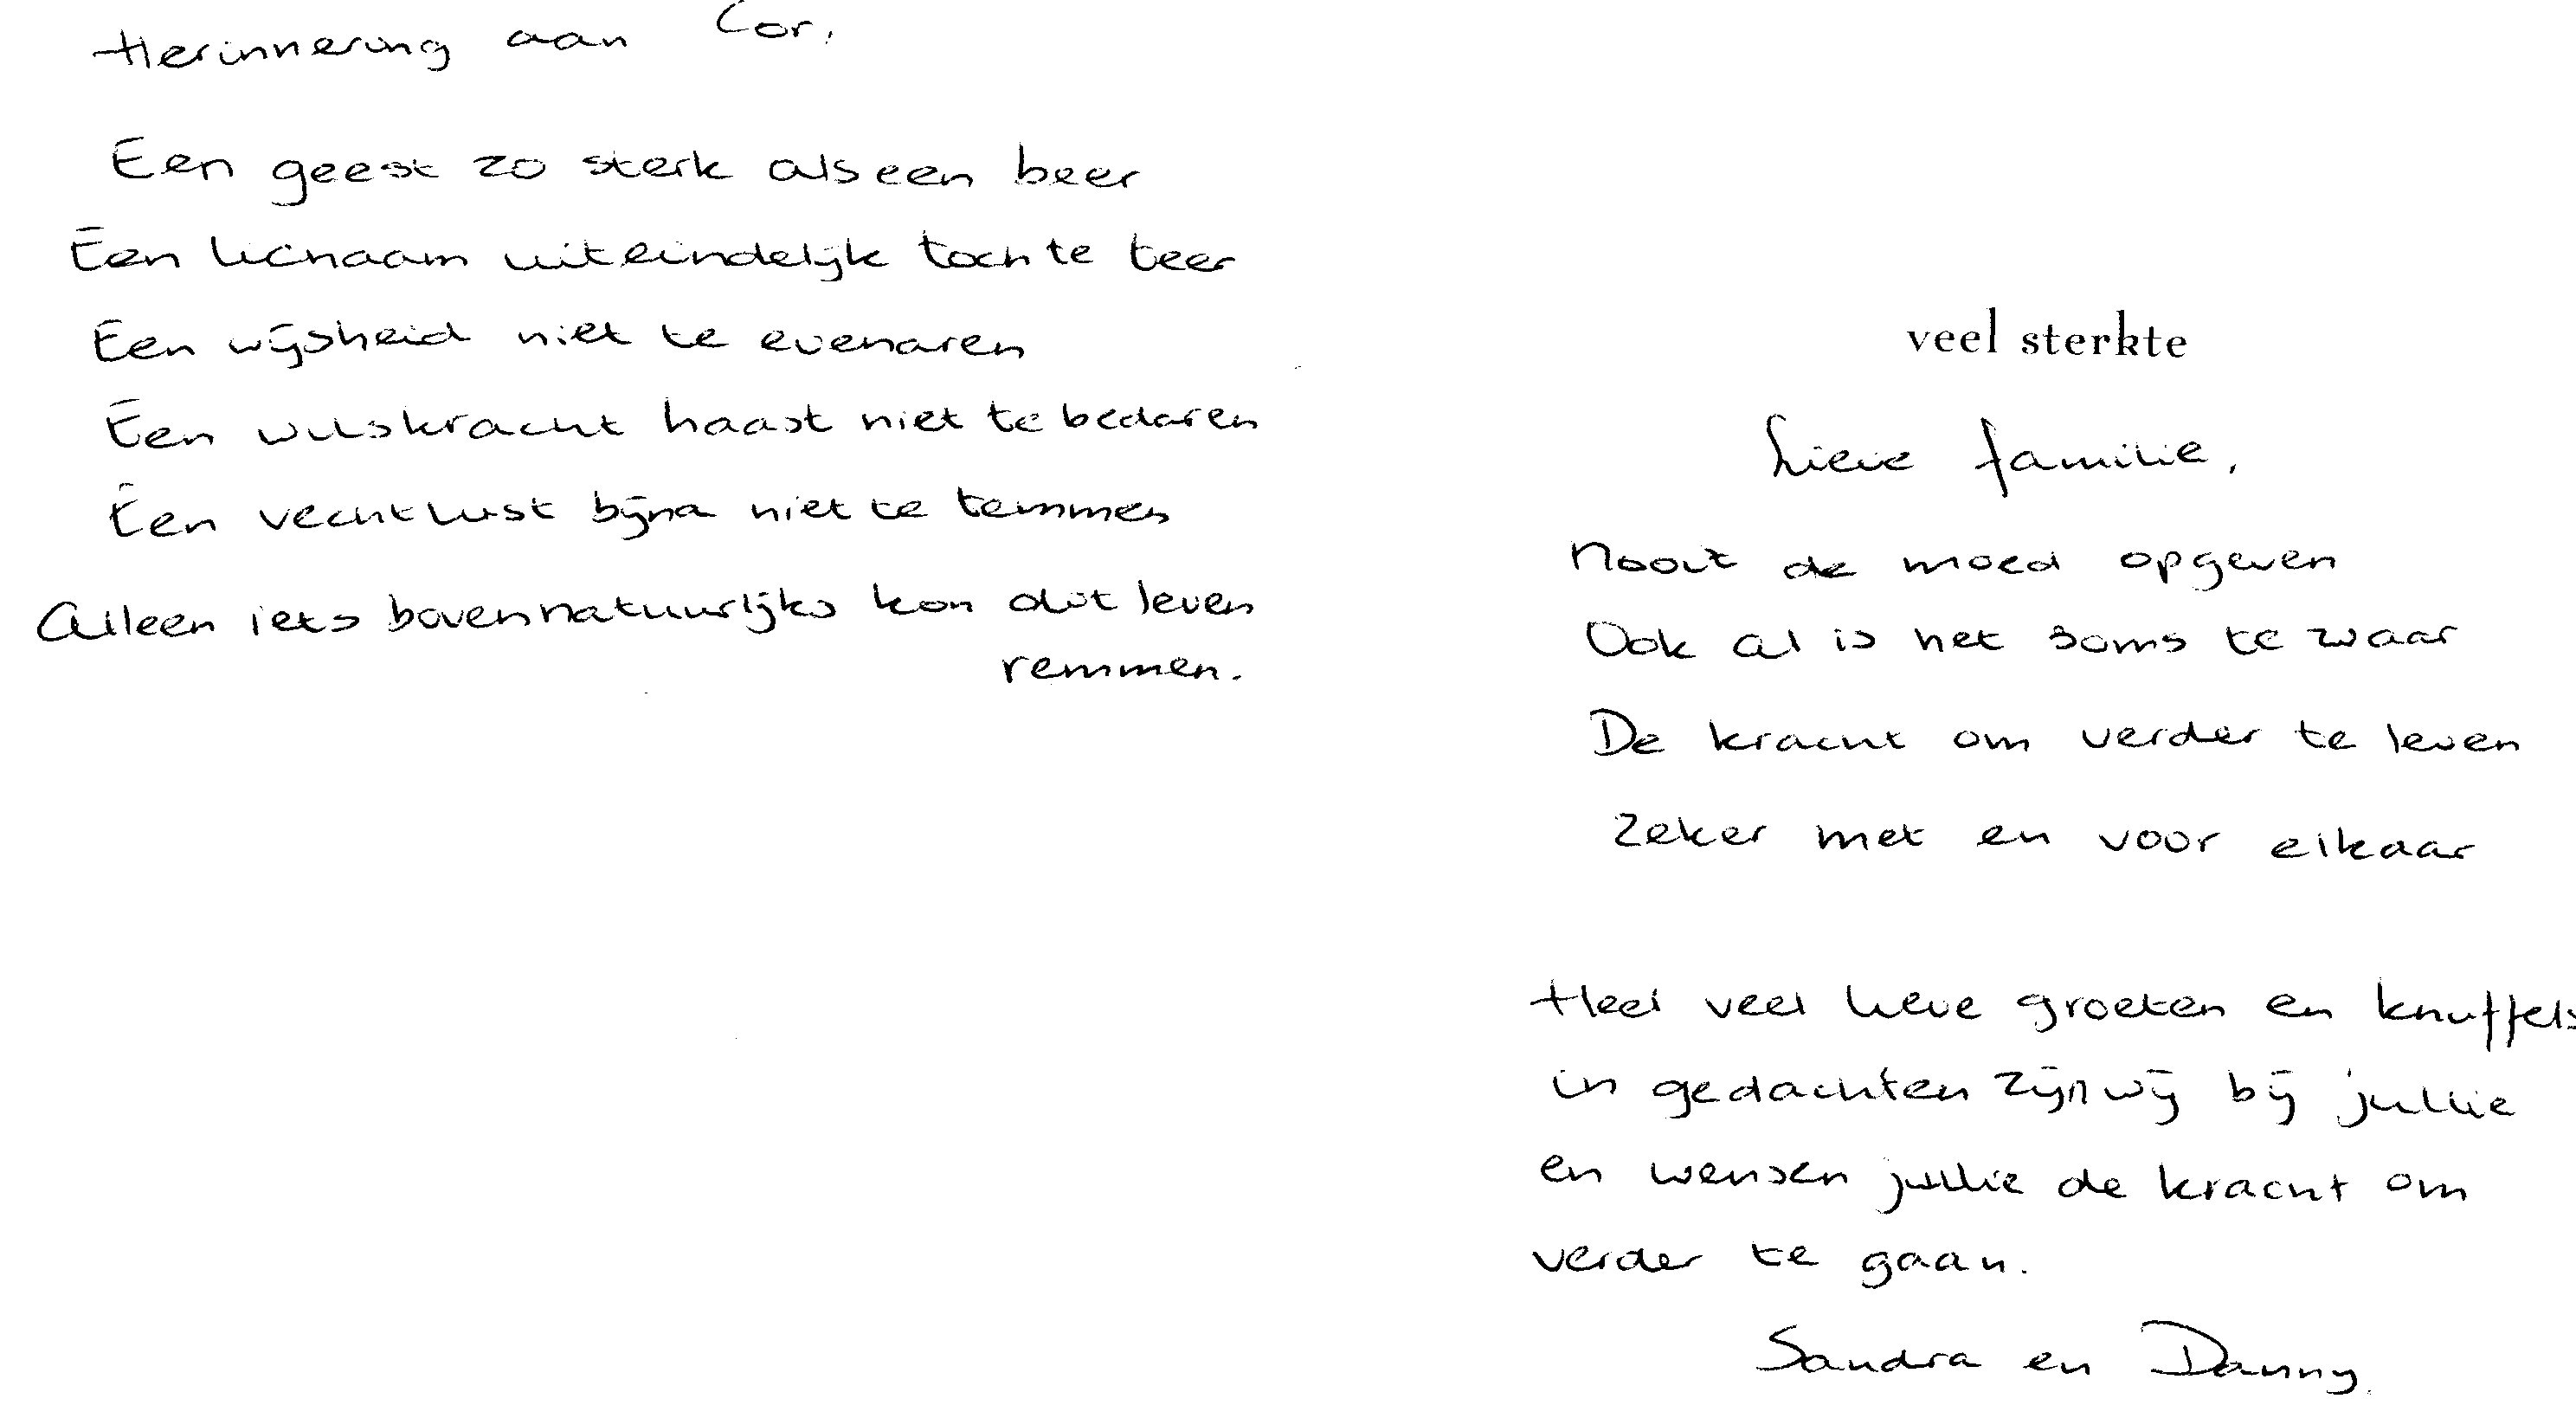 Herinnering aan Cor.
Een geest zo sterk als een beer
Een lichaam uiteindelijk toch te teer
Een wijsheid niet te evenaren
Een wilskracht haast niet te bedaren
Een vechtlust bijna niet te temmen
Alleen iets bovennatuurlijks kon dit leven
remmen.
veel sterkte
Lieve familie,
Nooit de moed opgeven
Ook al is het soms te zwaar
De kracht om verder te leven
Zeker met en voor elkaar
Heel veel lieve groeten en knuffels
in gedachten zijn wij bij jullie
en wensen jullie de kracht om
verder te gaan.
Sandra en Danny.